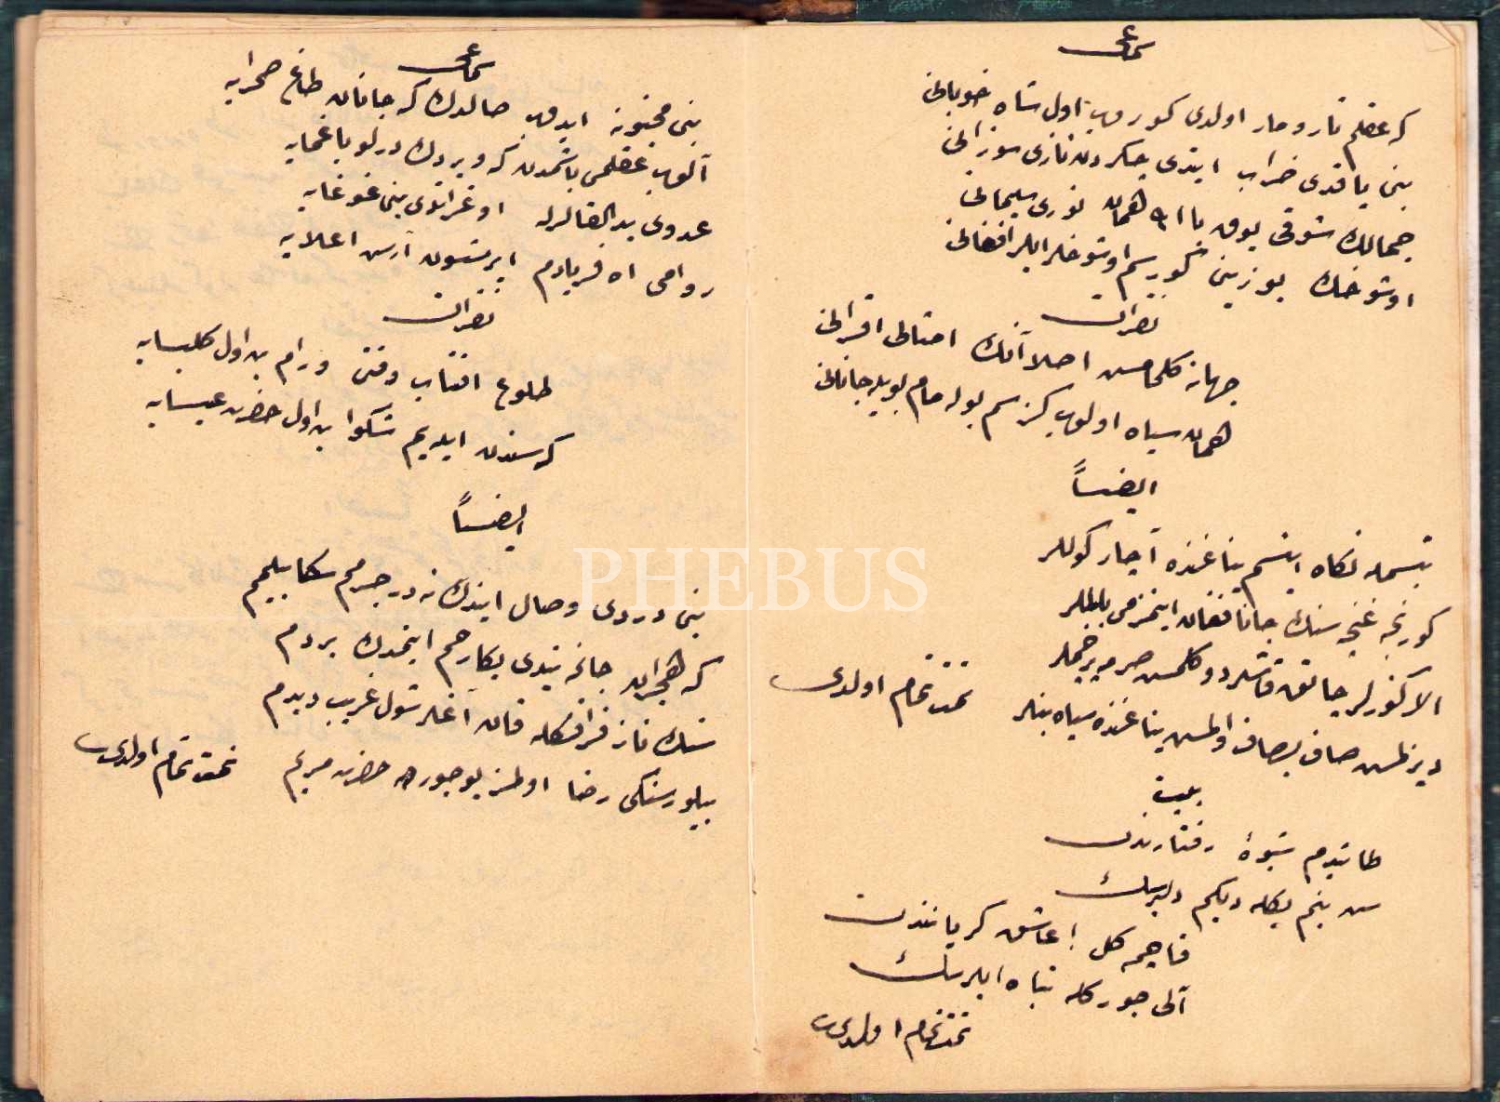 سماعی
که عقلم تارومار اولدی کوروب اول شاه خوبانی
بنی یاقدی خراب ایتدی جکردن ناری سوزانی
جمالك شوقی یوق همان نوری سیمانی
اوشوخك یوزینی کورسم اوشوخلر ایلر افغانی
نقرات
جهانه کلمامسن اصلا آنك امثالی اقرانی
همان سیاه اولوب کزسم بوله مام بویله جانانی
ایضاً
تبسمله نکاه ایتسم یناغنده آچار کوللر
کورنجه غنچه سنك جانا فغان ایتمزمی بلبللر
الا کوزلر چاتق قاشلر
دیزلمش صاف بصاف اولمش یناغنده سیاه بنلر
تمت تمام اولدی
بیت
طانیدم شیوهٔ رفتارندن
سن بنم دیکم دلبرسك
قاچمه کل عاشق کریانندن
آلی جورکله تباه ایلرسك
تمت تمام اولدی
سماعی
بنی مجنونه ایدوب صالدك که جانان طاغ صحرایه
آلوب عقلمی باشمدن که ویردك درلو
عدوی بد لقالرله اوغراتدی بنی غوغایه
روامی اه فریادم ایرشسون آرس اعلایه
نقرات
طلوع افتاب وقتی ورارم بن اول کلیسایه
که سندن ایلریم شکوا بن اول حضرت عیسایه
ایضاً
بنی دردی وصال ایتدك نه در جرمم سکا بیلمم
که هجرانك جانمه یتدی بکا رحم ایتمدك بردم
سنك ناز فراقكله قان آغلر شول غریب دیدم
بیلورسنکی رضا اولمز بوجوره حضرت مریم
تمت تمام اولدی
PHEBUS